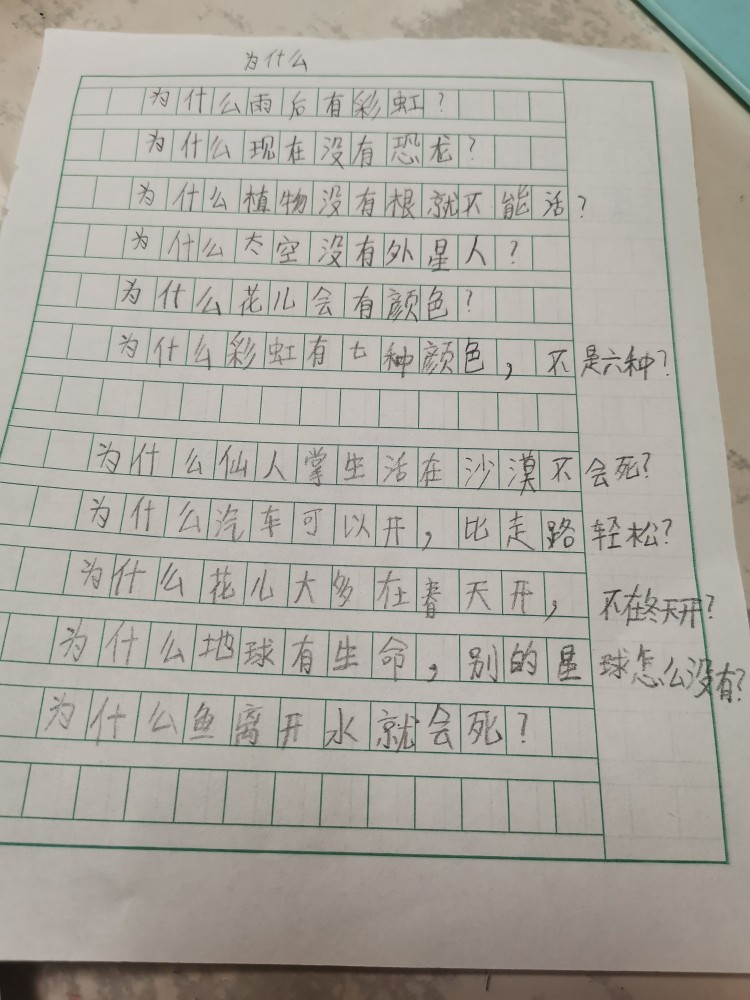 为什么
为什么雨后有彩虹?
为什么现在没有恐龙?
为什么植物没有根就不能活?
为什么太空没有外星人?
为什么花儿会有颜色?
为什么彩虹有七种颜色,不是六种?
为什么仙人掌生活在沙漠不会死?
为什么汽车可以开,比走路轻松?
为什么花儿大多在春天开,不在冬天开?
为什么地球有生命,别的星球怎么没有?
为什么鱼离开水就会死?